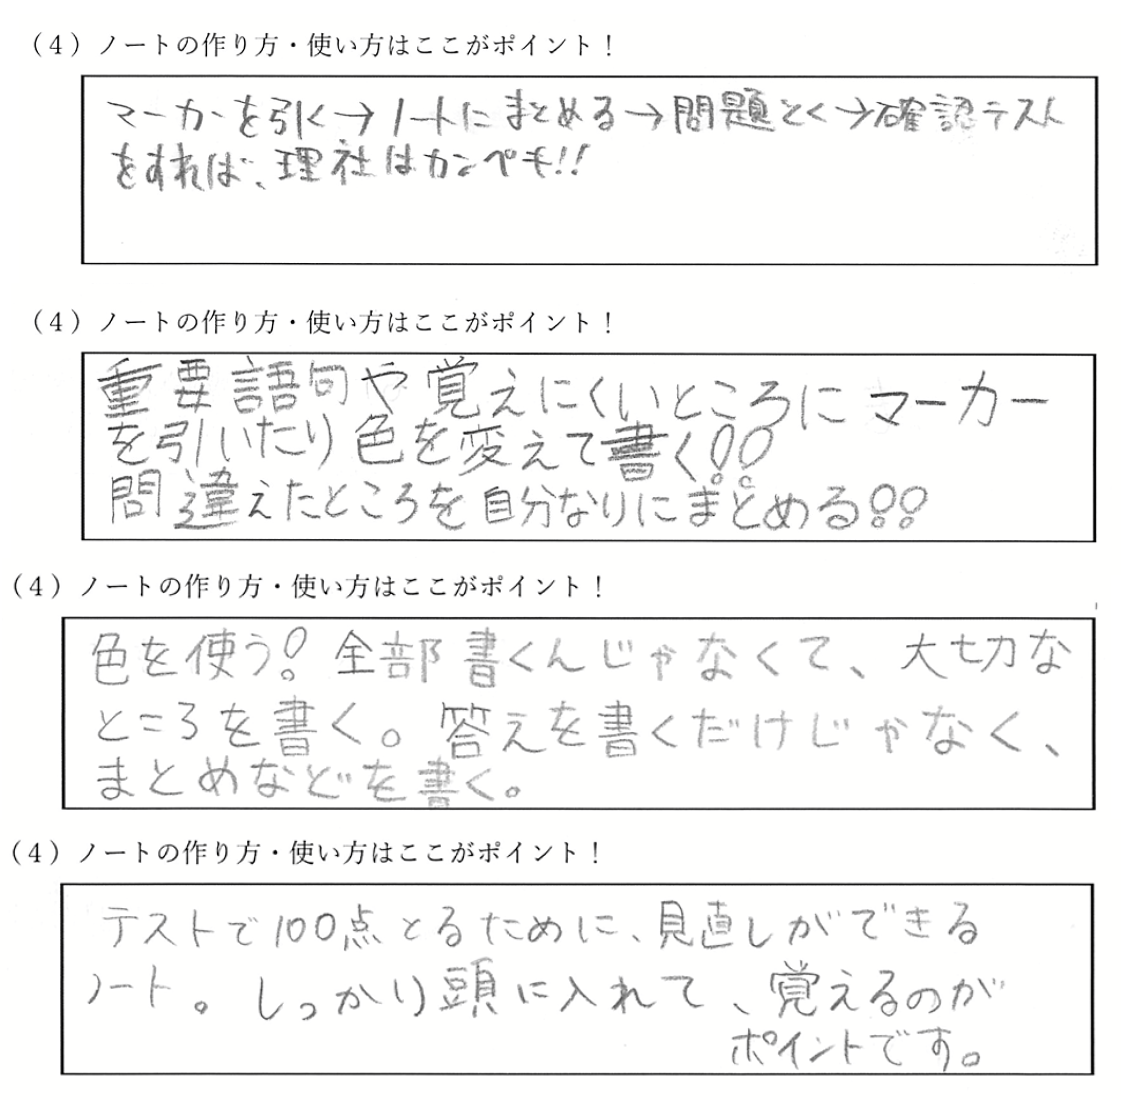 (4) ノートの作り方・使い方はここがポイント！
マーカーを引く→ノートにまとめる→問題とく→確認テスト
をすれば、理社はカンペキ!!
(4) ノートの作り方・使い方はここがポイント！
重要語句や覚えにくいところにマーカー
を引いたり色を変えて書く!!
間違えたところを自分なりにまとめる!!
(4) ノートの作り方・使い方はここがポイント！
色を使う! 全部書くんじゃなくて、大切な
ところを書く。答えを書くだけじゃなく、
まとめなどを書く。
(4) ノートの作り方・使い方はここがポイント！
テストで100点とるために、見直しができる
ノート。しっかり頭に入れて、覚えるのが
ポイントです。